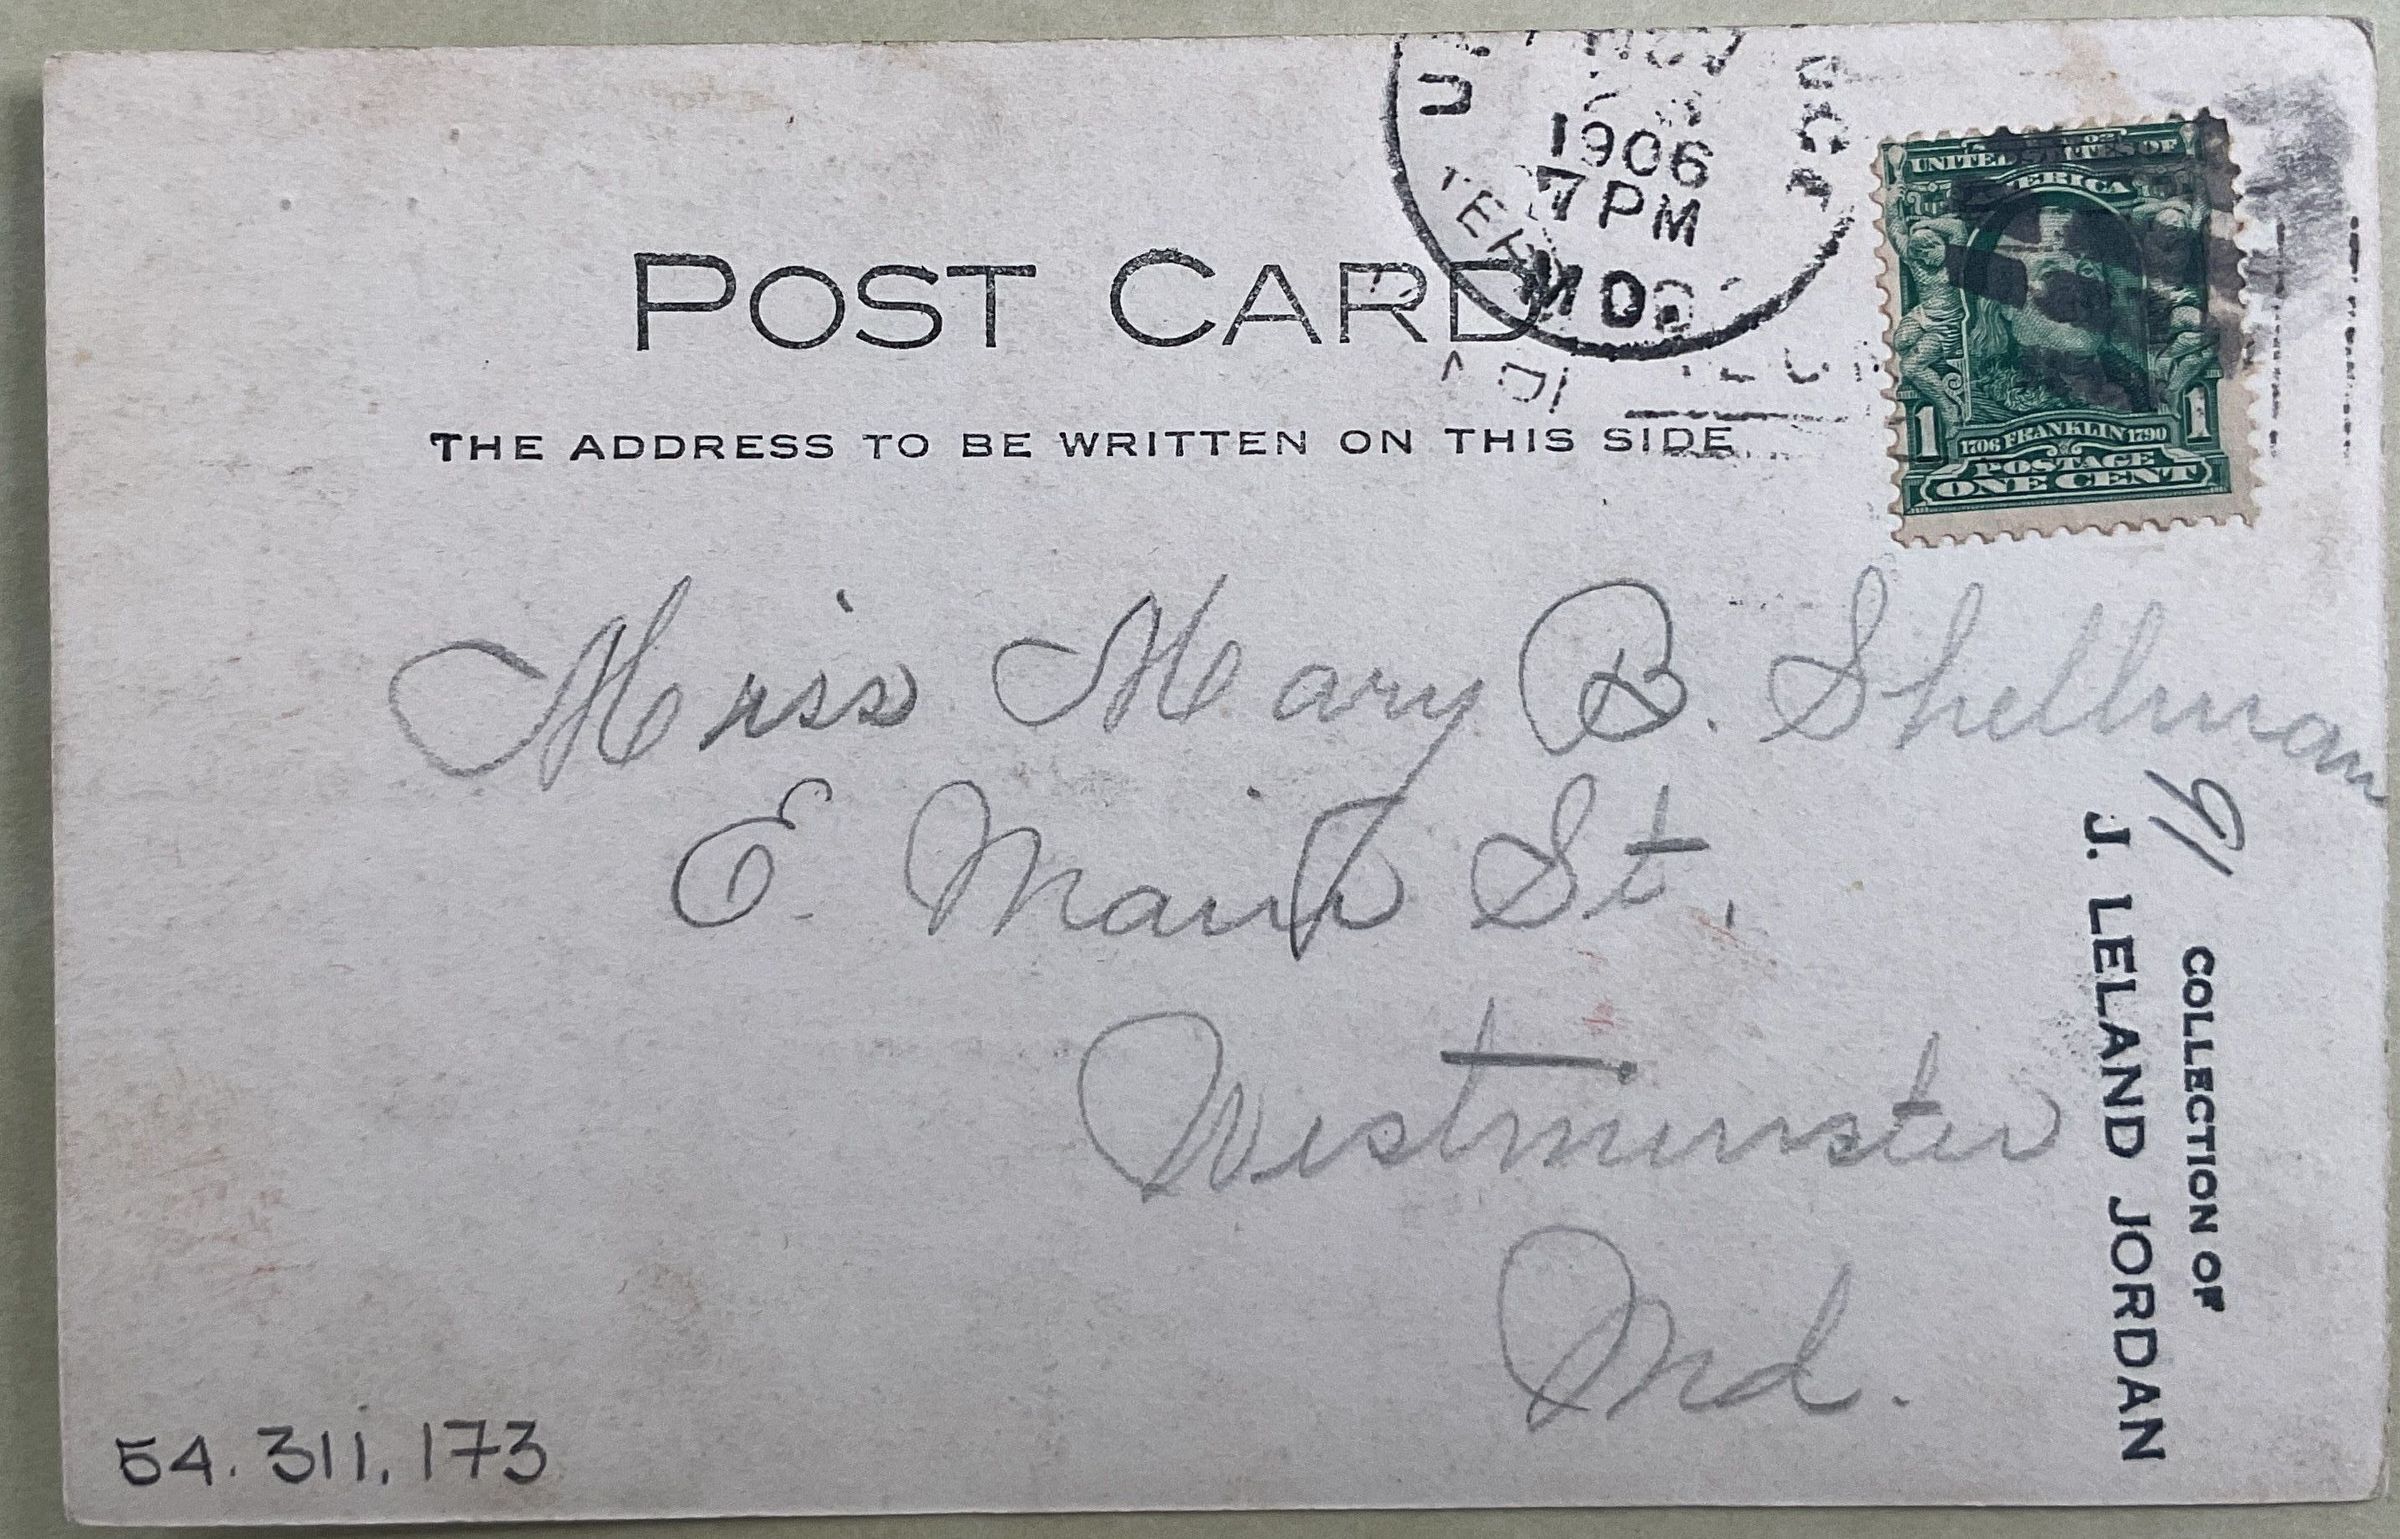 NOV
1906
7 PM
MD.
UNITED STATES OF
AMERICA
1 1706 FRANKLIN 1790 1
POSTAGE
ONE CENT
POST CARD
THE ADDRESS TO BE WRITTEN ON THIS SIDE
Miss Mary B. Shellman
E. Main St.
Westminster
Md.
COLLECTION OF
J. LELAND JORDAN
54.311.173